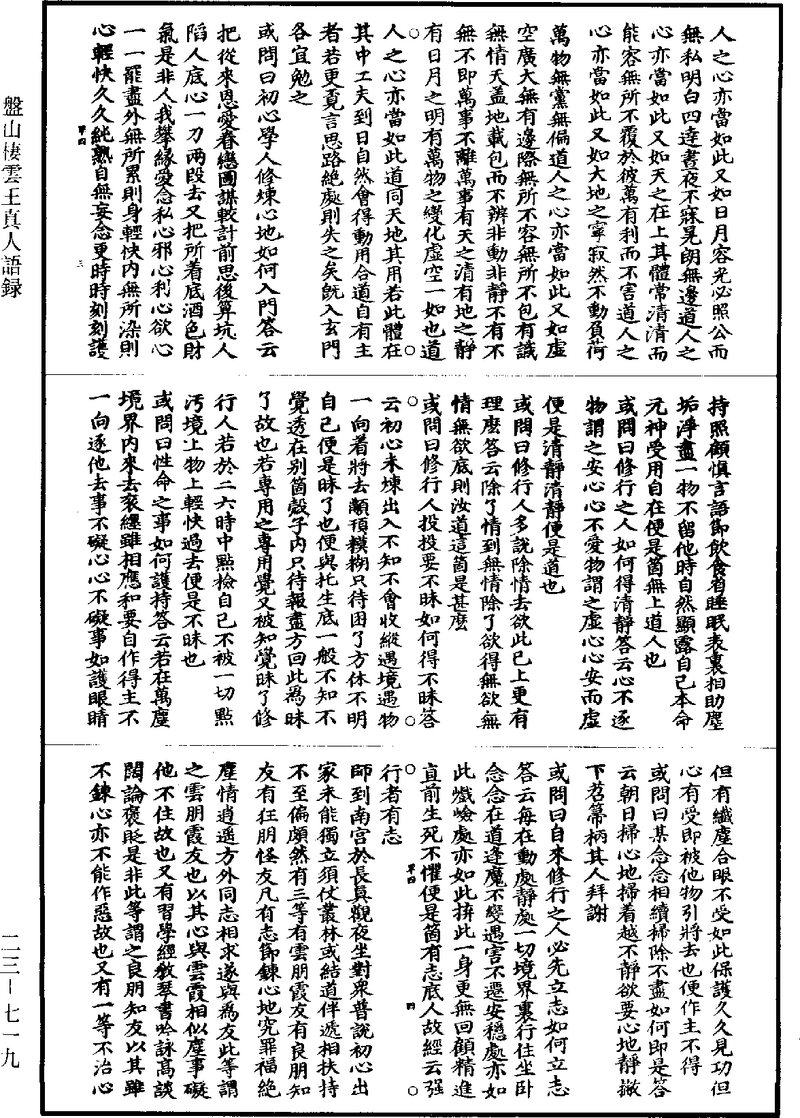 盤山棲雲王真人語録
二三－七一九
人之心亦當如此又如日月容光必照公而
無私明白四達晝夜不寐晃朗無邊道人之
心亦當如此又如天之在上其體常清清而
能容無所不覆於彼萬有利而不害道人之
心亦當如此又如大地之寧寂然不動負荷
萬物無黨無偏道人之心亦當如此又如虛
空廣大無有邊際無所不容無所不包有識
無情天蓋地載包而不辨非動非靜不有不
無不即萬事不離萬事有天之清有地之靜
有日月之明有萬物之變化虛空一如也道
人之心亦當如此道同天地其用若此體在
其中工夫到日自然會得動用合道自有主
者若更覔言思路絶處則失之矣既入玄門
各宜勉之
或問曰初心學人修煉心地如何入門答云
把從來恩愛眷戀圖謀較計前思後算坑人
陷人底心一刀兩段去又把所着底酒色財
氣是非人我攀緣愛念私心邪心利心欲心
一一罷盡外無所累則身輕快內無所染則
心輕快久久純熟自無妄念更時時刻刻護
甲四
三
持照顧慎言語節飲食省睡眠表裏相助塵
垢淨盡一物不留他時自然顯露自己本命
元神受用自在便是箇無上道人也
或問曰修行之人如何得清靜答云心不逐
物謂之安心心不愛物謂之虛心心安而虛
便是清靜清靜便是道也
或問曰修行人多說除情去欲此已上更有
理麽答云除了情到無情除了欲得無欲無
情無欲底則汝道這箇是甚麽
或問曰修行人投投要不昧如何得不昧答
云初心未煉出入不知不會收縱遇境遇物
一向着將去顢頇糢糊只待困了方休不明
自己便是昧了也便與托生底一般不知不
覺透在別箇殼子內只待報盡方回此爲昧
了故也若專用之專用覺又被知覺昧了修
行人若於二六時中點檢自己不被一切點
汚境上物上輕快過去便是不昧也
或問曰性命之事如何護持答云若在萬塵
境界內來去衮纏雖相應和要自作得主不
一向逐他去事不礙心心不礙事如護眼睛
但有纖塵合眼不受如此保護久久見功但
心有受即被他物引將去也便作主不得
或問曰某念念相續掃除不盡如何即是答
云朝日掃心地掃着越不靜欲要心地靜撇
下苕箒柄其人拜謝
或問曰自來修行之人必先立志如何立志
答云每在動處靜處一切境界裏行住坐臥
念念在道逢魔不變遇害不遷安穩處亦如
此巇嶮處亦如此拚此一身更無回顧精進
直前生死不懼便是箇有志底人故經云强
行者有志
師到南宮於長真觀夜坐對衆普說初心出
家未能獨立須仗叢林或結道伴遞相扶持
不至偏頗然有三等有雲朋霞友有良朋知
友有狂朋怪友凡有志節鍊心地究罪福絶
塵情逍遥方外同志相求遂與爲友此等謂
之雲朋霞友也以其心與雲霞相似塵事礙
他不住故也又有習學經教琴書吟詠高談
闊論褒貶是非此等謂之良朋知友以其雖
不鍊心亦不能作惡故也又有一等不治心
甲四
四